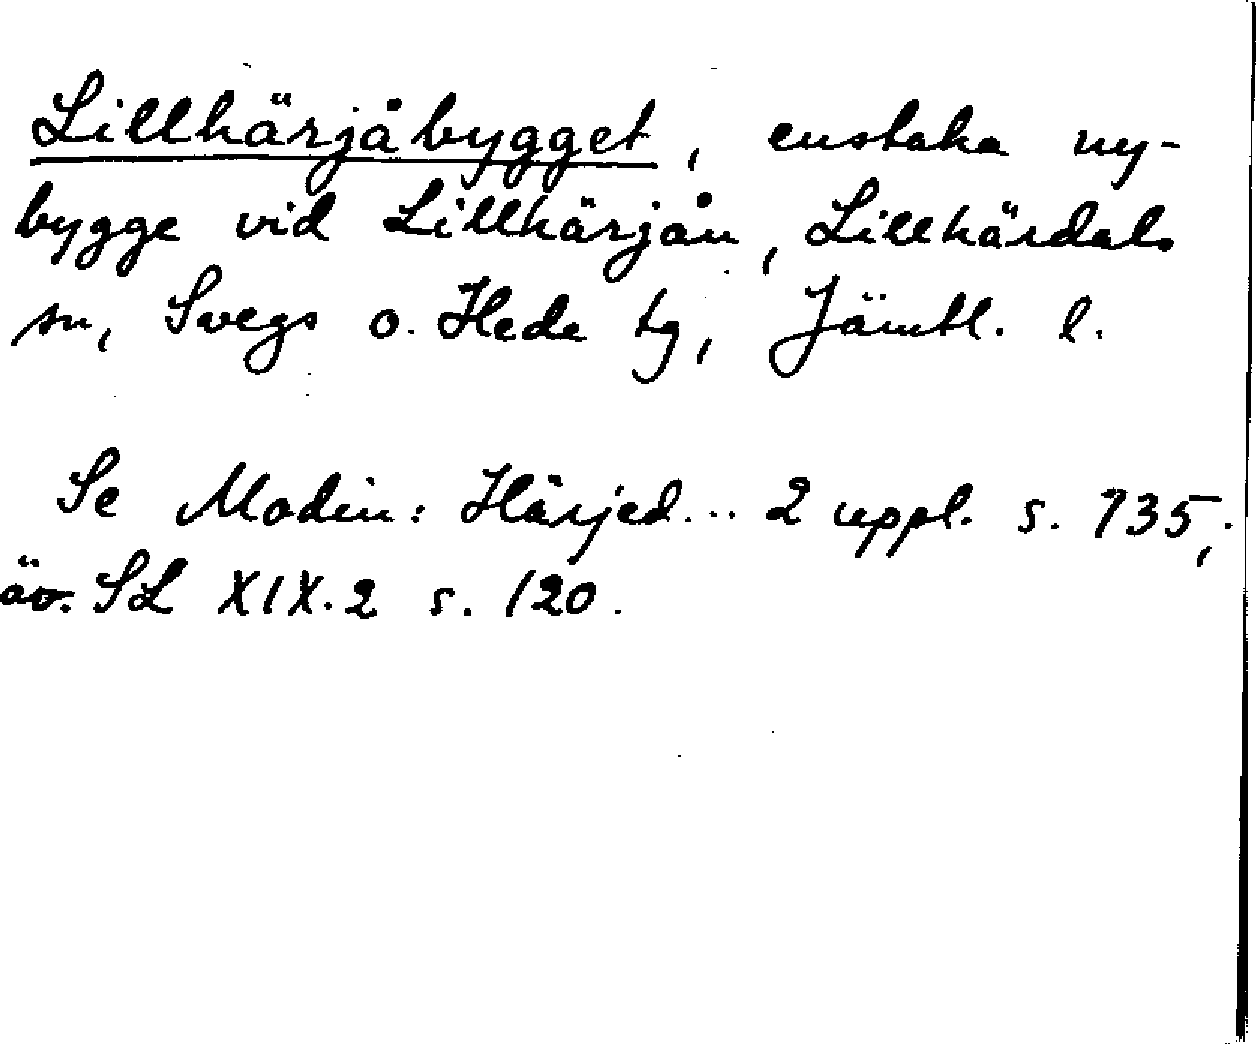 Lillhärjåbygget, enstaka ny-
bygge vid Lillhärjån, Lillhärdals
sn, Svegs o. Hede tg, Jämtl. l.
Se Modin: Härjed... 2 uppl. s. 735,
äv. SL XIX.2 s. 120.